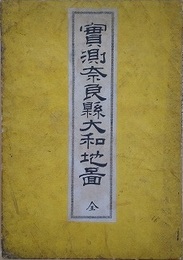 實測奈良縣大和地圖
全